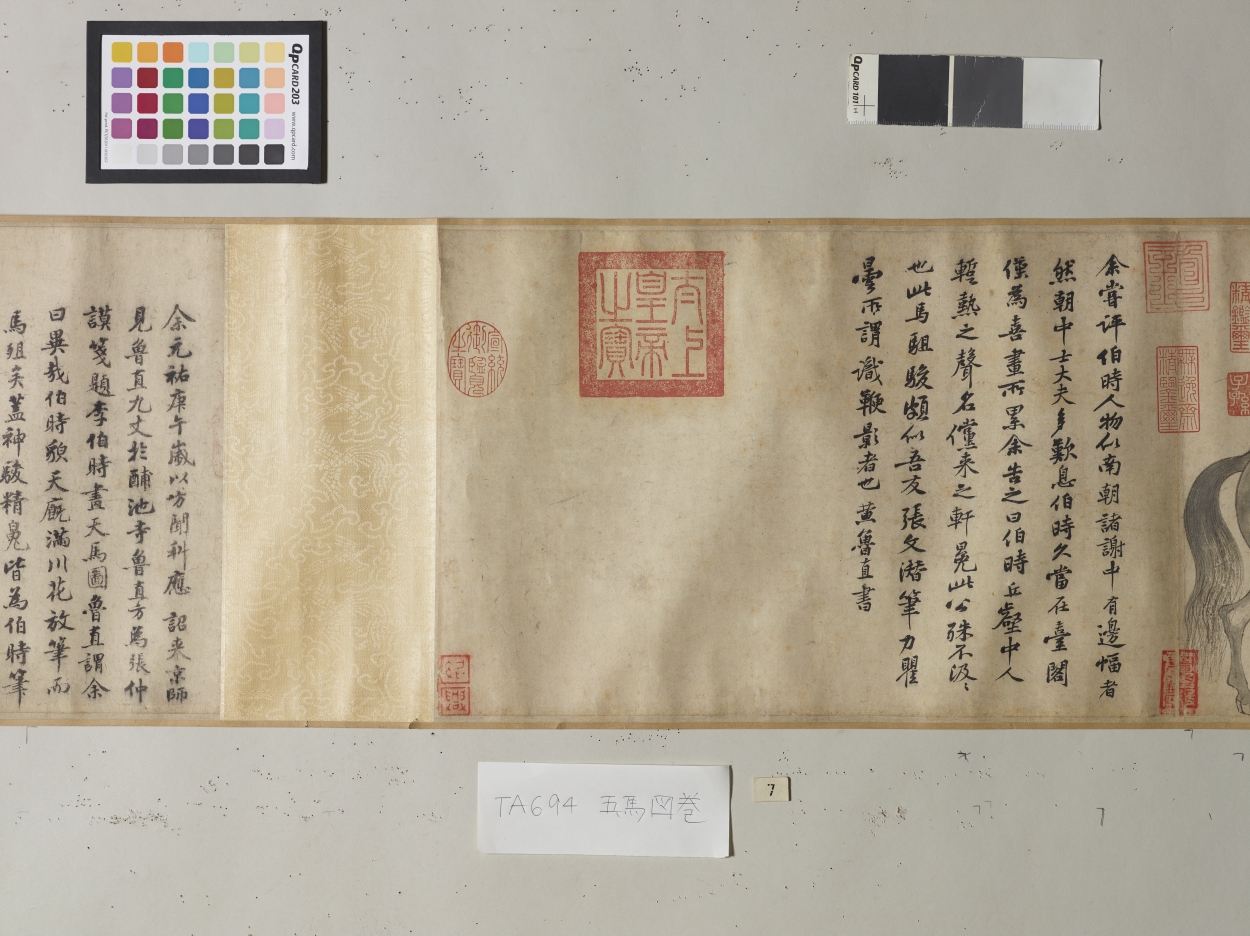 QPCARD 203
www.qpcard.com
QPCARD 101
余嘗評伯時人物似南朝諸謝中有邊幅者
然朝中士大夫多歎息伯時久當在臺閣
僅為喜畫所累余告之曰伯時丘壑中人
蹔熱之聲名儻来之軒冕此公殊不汲〻
也此馬駔駿頗似吾友張文潜筆力瞿
曇所謂識鞭影者也黄魯直書
太上皇帝之寶
宣統御覽之寶
余元祐庚午歲以方聞科應 詔来京師
見魯直九丈於酺池寺魯直方為張仲
謨箋題李伯時畫天馬圖魯直謂余
曰異哉伯時貌天廐滿川花放筆而
馬殂矣蓋神駿精魄皆為伯時筆
TA694 五馬図巻
7